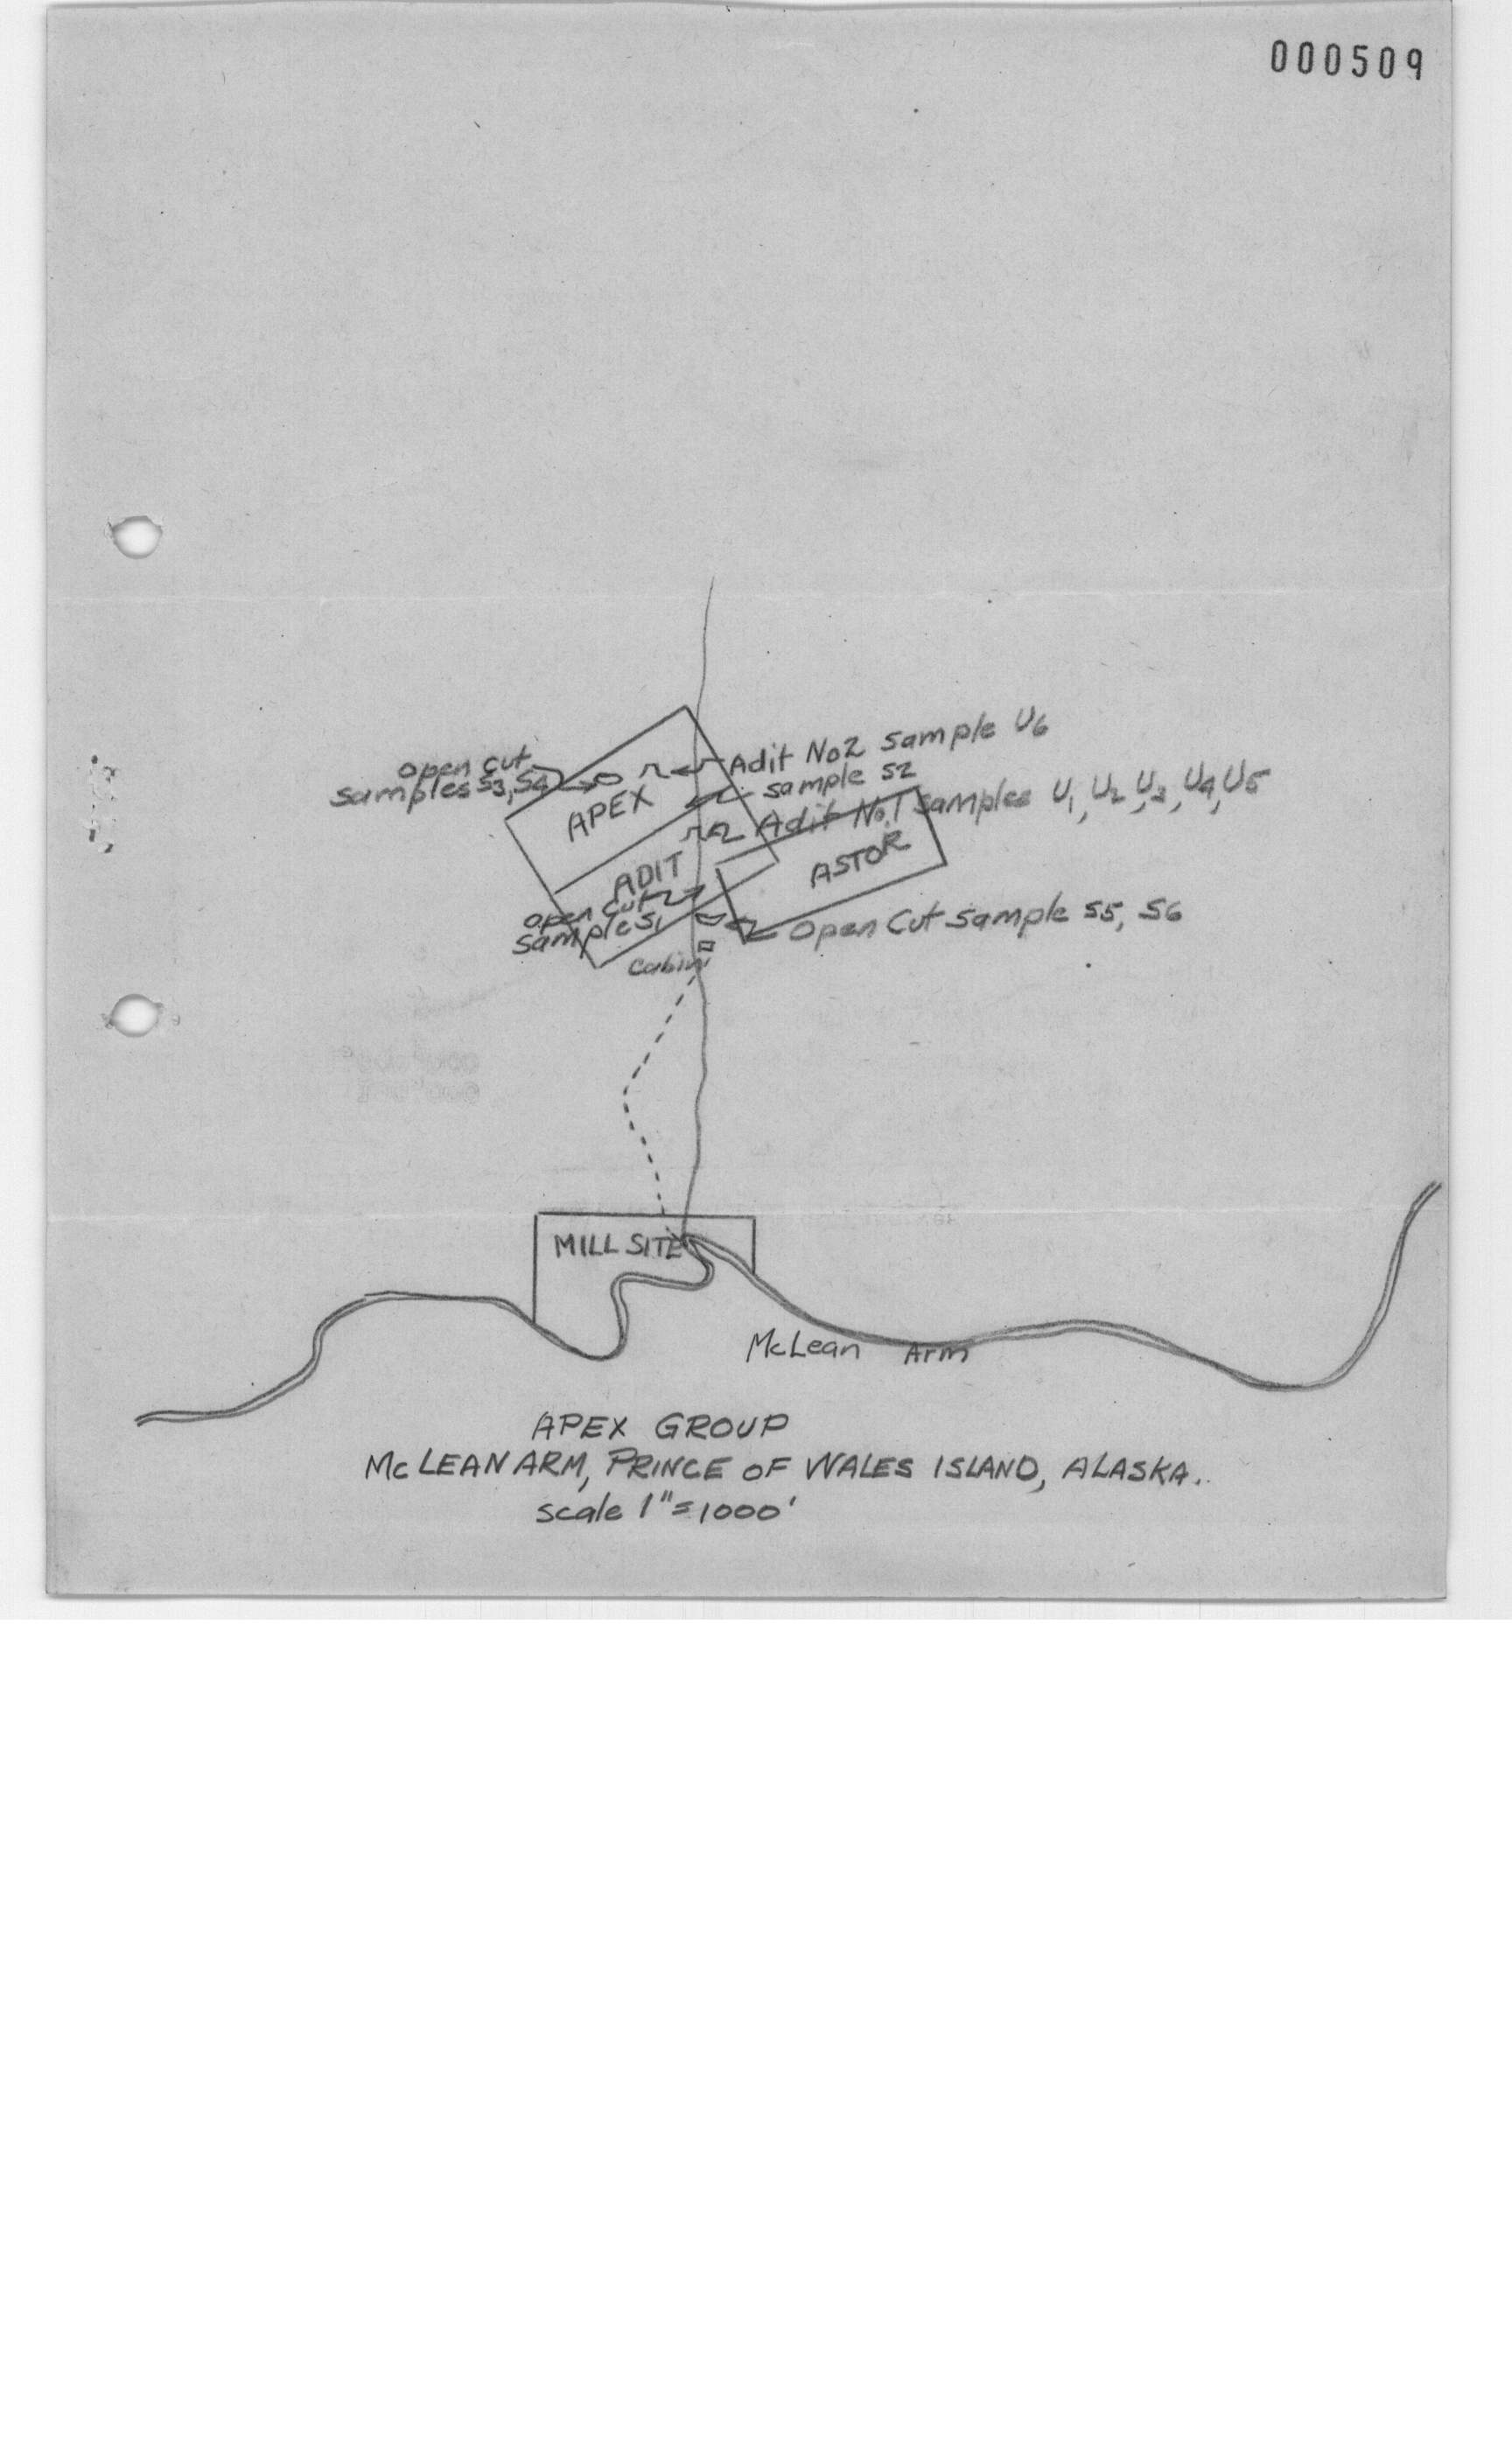 000509
Adit No2 sample U6
open cut
samples S3, S4
sample S2
APEX
Adit No.1 samples U1, U2, U3, U4, U5
ASTOR
ADIT
open cut
sample S1
Open Cut sample S5, S6
Cabin
MILL SITE
McLean Arm
APEX GROUP
McLEAN ARM, PRINCE OF WALES ISLAND, ALASKA.
scale 1"=1000'